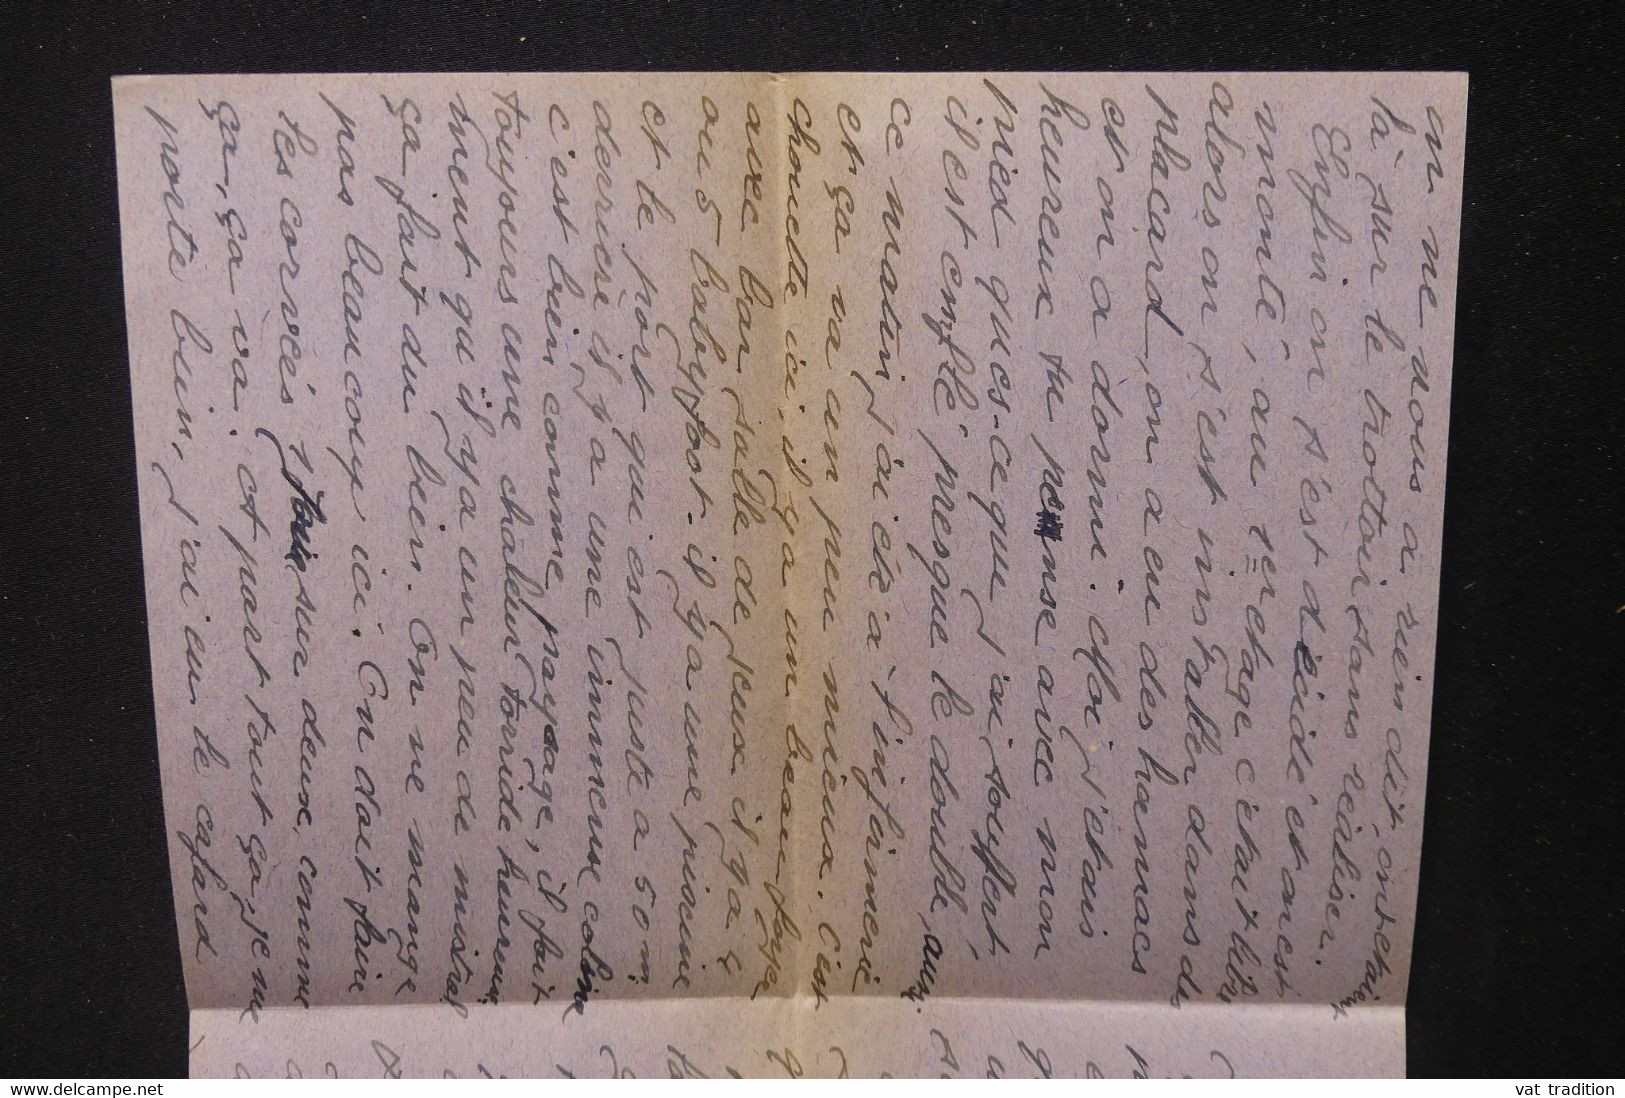 on ne nous a rien dit, on était
là sur le trottoir sans réaliser.
Enfin on s'est décidé et on est
monté, au 1er étage c'était
alors on s'est installer dans des
placard, on a eu des hamacs
et on a dormi. Moi j'étais
heureux tu pense avec mon
pied ques-ce que j'ai souffert
il est enflé, presque le double, aussi
ce matin j'ai été à l'infirmerie
et ça va un peu mieux. C'est
chouette ici. il y a un beau foyer
avec bar, salle de jeux il y a 4
ou 5 babyfoot. il y a une piscine
et le port qui est juste a 50 m
derrière il y a une immense colline
c'est bien comme paysage, il fait
toujours une chaleur torride heureuse
ment qu'il y a un peu de mistral
ça fait du bien. On ne mange
pas beaucoup ici. On doit faire
les corvées 1 fois sur deux, comme
ça, ça va. A part tout ça, je me
porte bien, j'ai eu le cafard
vat tradition